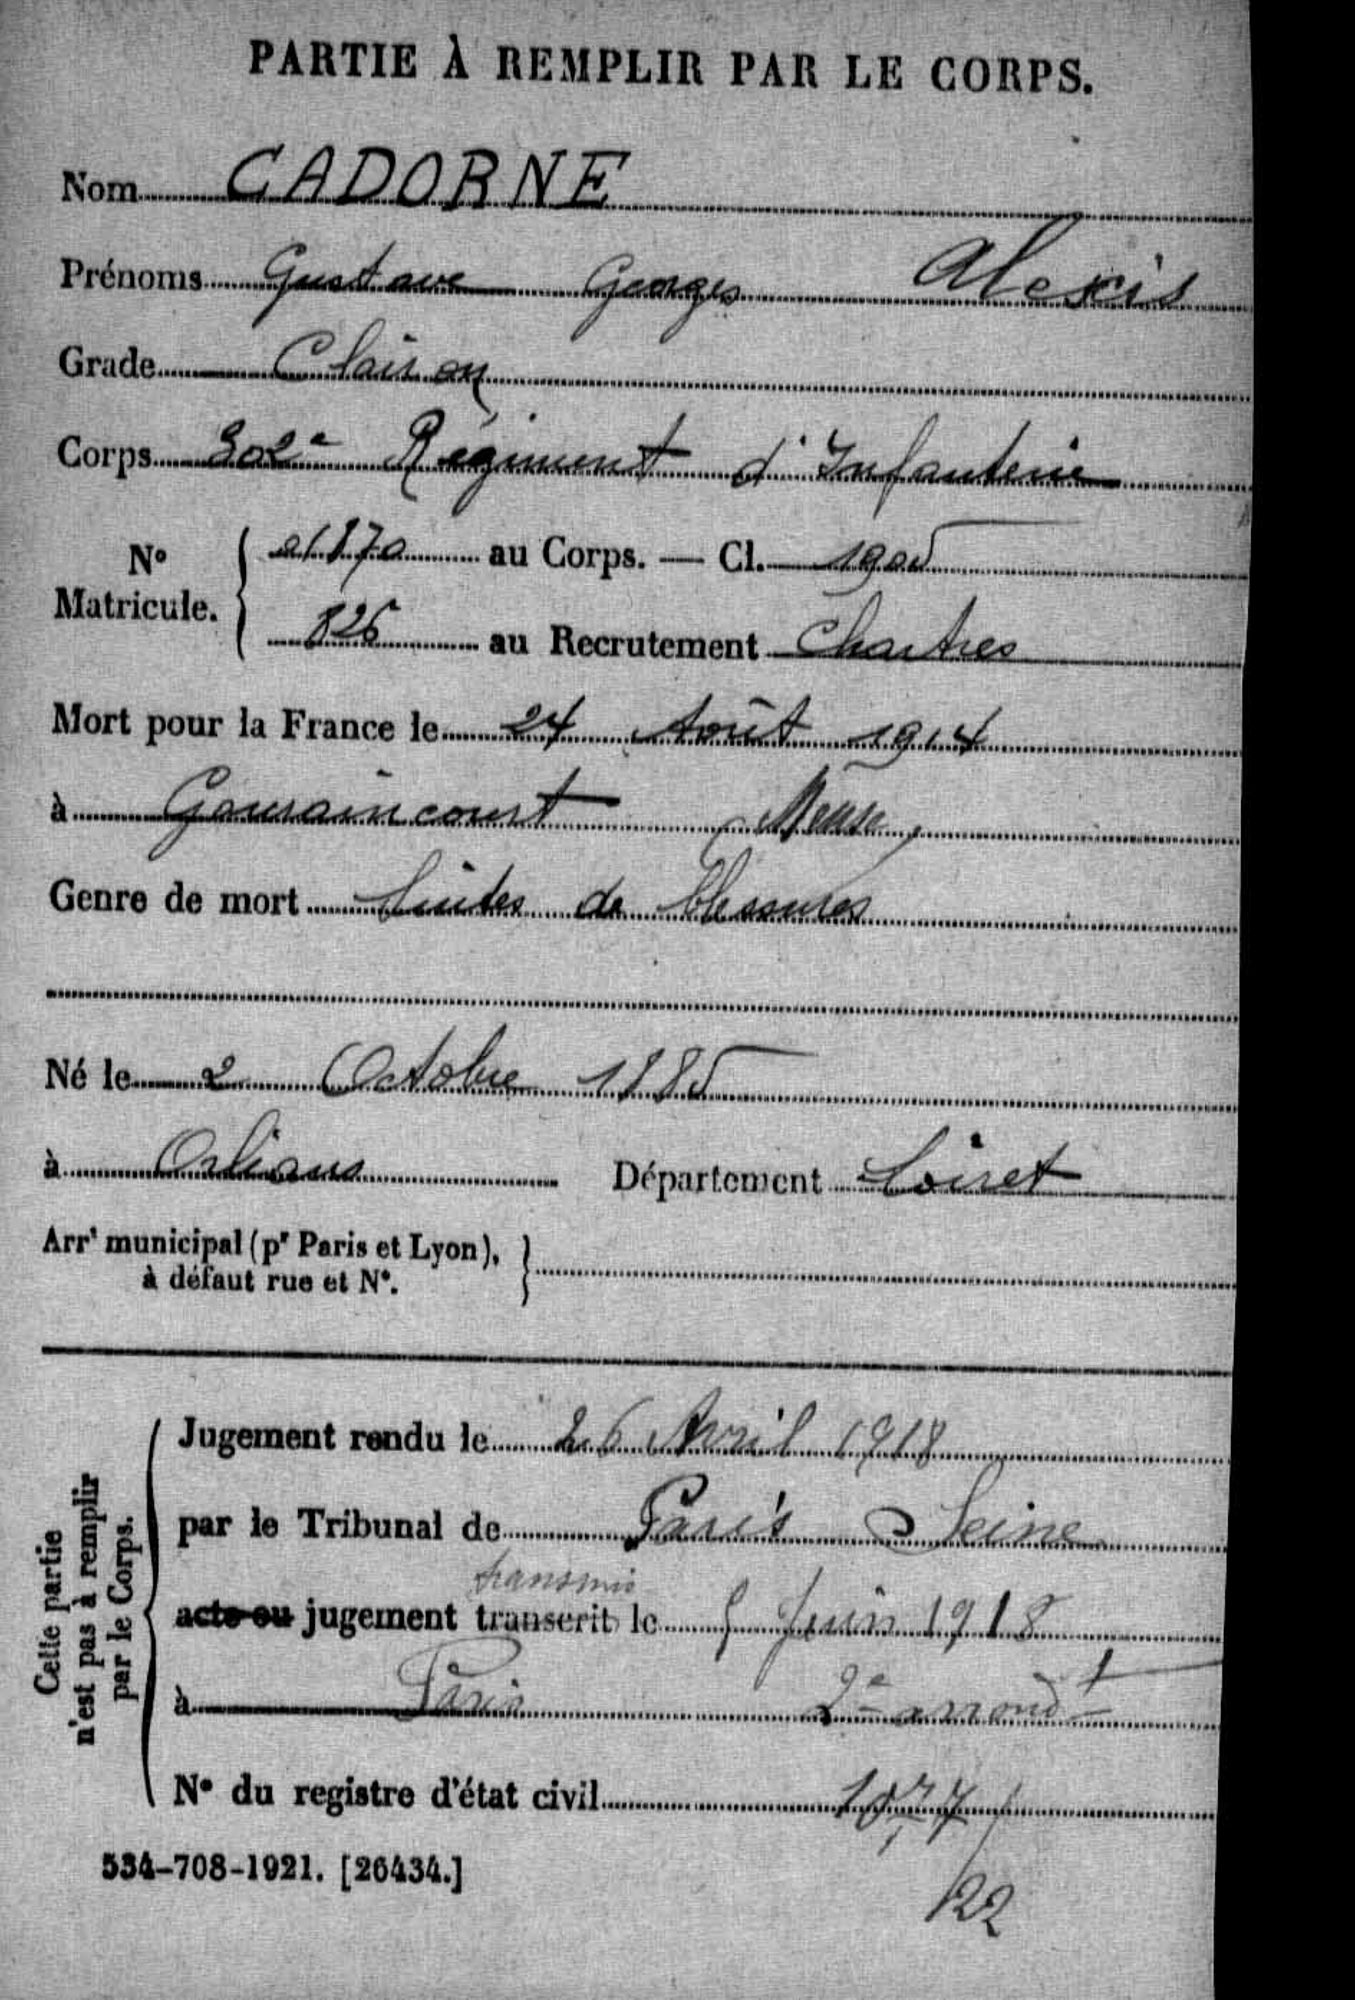 PARTIE À REMPLIR PAR LE CORPS.
Nom CADORNE
Prénoms Gustave Georges Alexis
Grade Clairon
Corps 302e Régiment d'Infanterie
No Matricule. { 01870 au Corps. — Cl. 1905
826 au Recrutement Chartres
Mort pour la France le 24 Août 1914
à Gouraincourt (Meuse)
Genre de mort Suites de blessures
Né le 2 Octobre 1885
à Orléans Département Loiret
Arrt municipal (pr Paris et Lyon), }
à défaut rue et No.
Cette partie
n'est pas à remplir
par le Corps.
Jugement rendu le 26 Avril 1918
par le Tribunal de Paris Seine
transmis
acte ou jugement transcrit le 5 Juin 1918
à Paris 2e arrondt
No du registre d'état civil 1077
/22
534-708-1921. [26434.]